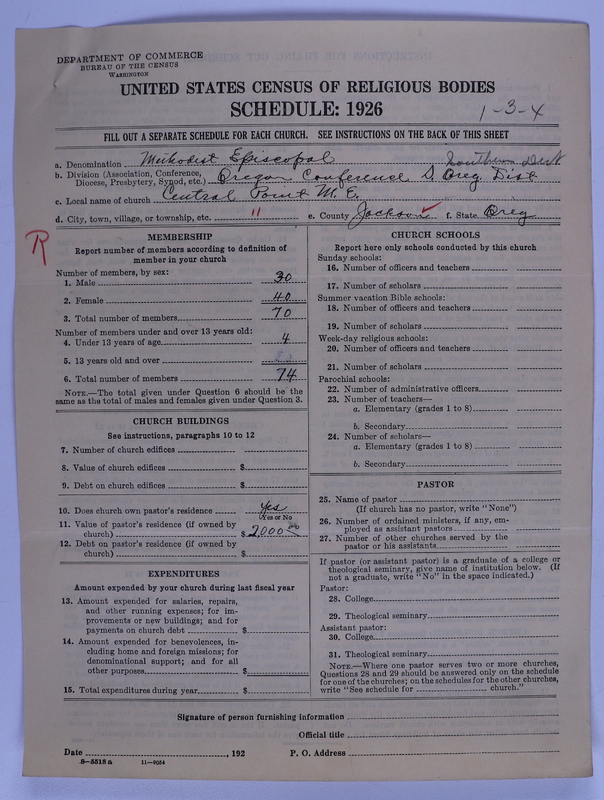 DEPARTMENT OF COMMERCE
BUREAU OF THE CENSUS
WASHINGTON
UNITED STATES CENSUS OF RELIGIOUS BODIES
SCHEDULE: 1926
1-3-4
FILL OUT A SEPARATE SCHEDULE FOR EACH CHURCH. SEE INSTRUCTIONS ON THE BACK OF THIS SHEET
a. Denomination Methodist Episcopal Southern Dist
b. Division (Association, Conference, Diocese, Presbytery, Synod, etc.) Oregon Conference S Oreg. Dist
c. Local name of church Central Point M. E.
d. City, town, village, or township, etc. " e. County Jackson f. State Oreg
R
MEMBERSHIP
Report number of members according to definition of
member in your church
Number of members, by sex:
1. Male 30
2. Female 40
3. Total number of members 70
Number of members under and over 13 years old:
4. Under 13 years of age 4
5. 13 years old and over
6. Total number of members 74
NOTE.—The total given under Question 6 should be the
same as the total of males and females given under Question 3.
CHURCH BUILDINGS
See instructions, paragraphs 10 to 12
7. Number of church edifices
8. Value of church edifices $
9. Debt on church edifices $
10. Does church own pastor's residence Yes
Yes or No
11. Value of pastor's residence (if owned by
church) $ 2,000 00
12. Debt on pastor's residence (if owned by
church) $
EXPENDITURES
Amount expended by your church during last fiscal year
13. Amount expended for salaries, repairs,
and other running expenses; for im-
provements or new buildings; and for
payments on church debt $
14. Amount expended for benevolences, in-
cluding home and foreign missions; for
denominational support; and for all
other purposes $
15. Total expenditures during year $
CHURCH SCHOOLS
Report here only schools conducted by this church
Sunday schools:
16. Number of officers and teachers
17. Number of scholars
Summer vacation Bible schools:
18. Number of officers and teachers
19. Number of scholars
Week-day religious schools:
20. Number of officers and teachers
21. Number of scholars
Parochial schools:
22. Number of administrative officers
23. Number of teachers—
a. Elementary (grades 1 to 8)
b. Secondary
24. Number of scholars—
a. Elementary (grades 1 to 8)
b. Secondary
PASTOR
25. Name of pastor
(If church has no pastor, write "None")
26. Number of ordained ministers, if any, em-
ployed as assistant pastors
27. Number of other churches served by the
pastor or his assistants
If pastor (or assistant pastor) is a graduate of a college or
theological seminary, give name of institution below. (If
not a graduate, write "No" in the space indicated.)
Pastor:
28. College
29. Theological seminary
Assistant pastor:
30. College
31. Theological seminary
NOTE.—Where one pastor serves two or more churches,
Questions 28 and 29 should be answered only on the schedule
for one of the churches; on the schedules for the other churches,
write "See schedule for church."
Signature of person furnishing information
Official title
Date , 192 P. O. Address
8—5518 a 11—9054